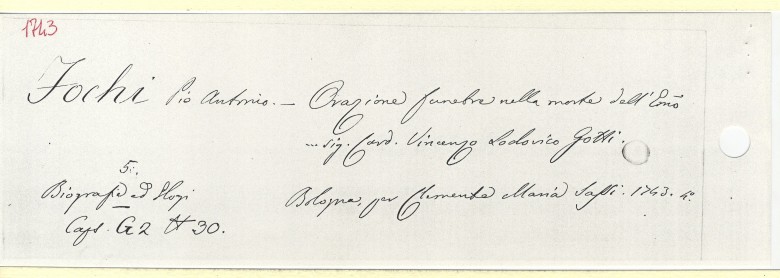 1743
Fochi Pio Antonio. — Orazione funebre nella morte dell'Emo
sig. Card. Vincenzo Lodovico Gotti.
5.
Biografie ed Elogi
Caps. G2 # 30.
Bologna, per Clemente Maria Sassi. 1743. 4.